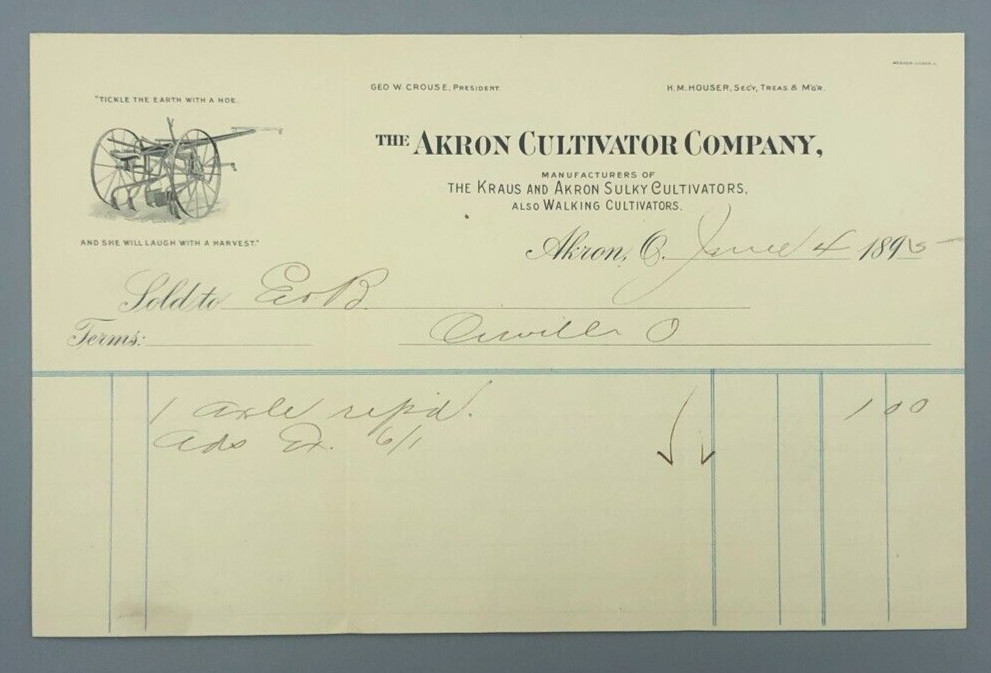 GEO W. CROUSE, PRESIDENT.
H. M. HOUSER, SEC'Y, TREAS. & M'G'R.
"TICKLE THE EARTH WITH A HOE.
AND SHE WILL LAUGH WITH A HARVEST."
THE AKRON CULTIVATOR COMPANY,
MANUFACTURERS OF
THE KRAUS AND AKRON SULKY CULTIVATORS,
ALSO WALKING CULTIVATORS.
Akron, O. June 4 1895
Sold to
Terms: O
1 axle rep'd. 1 00
Ads Ex. 6/1